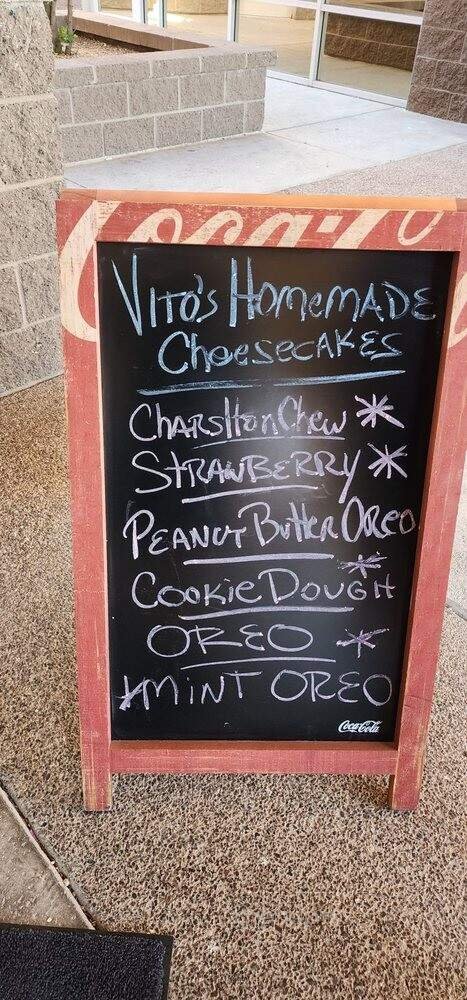 Coca-Co
Vito's Homemade
Cheesecakes
CharsltonChew *
Strawberry *
Peanut Butter Oreo
*
Cookie Dough
Oreo *
*Mint Oreo
Coca-Cola